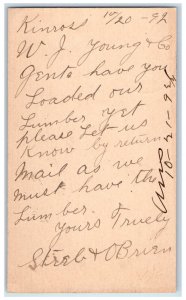 Kinross 10/20 - 92
W. J. Young & Co
Gents have you
Loaded our
Lumber Yet
please Let us
Know by return
Mail as we
must have the
Lumber.
Yours Truely
& OBrien
10-21-92